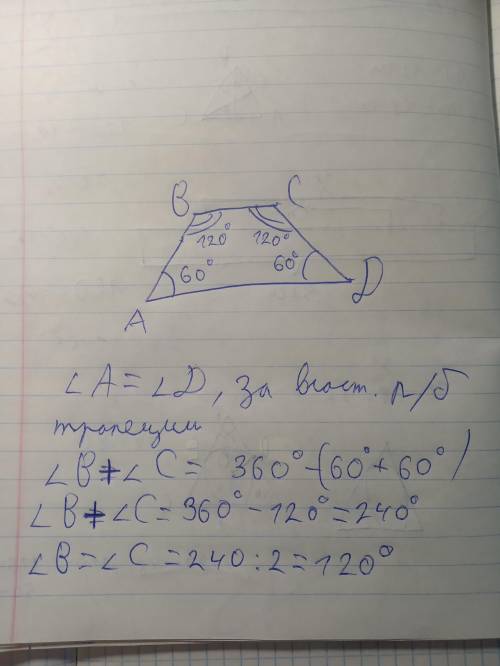 B C
120° 120°
60° 60°
A D
∠A = ∠D, за власт. р/б
трапеции
∠B + ∠C = 360° - (60° + 60°)
∠B + ∠C = 360° - 120° = 240°
∠B = ∠C = 240 : 2 = 120°